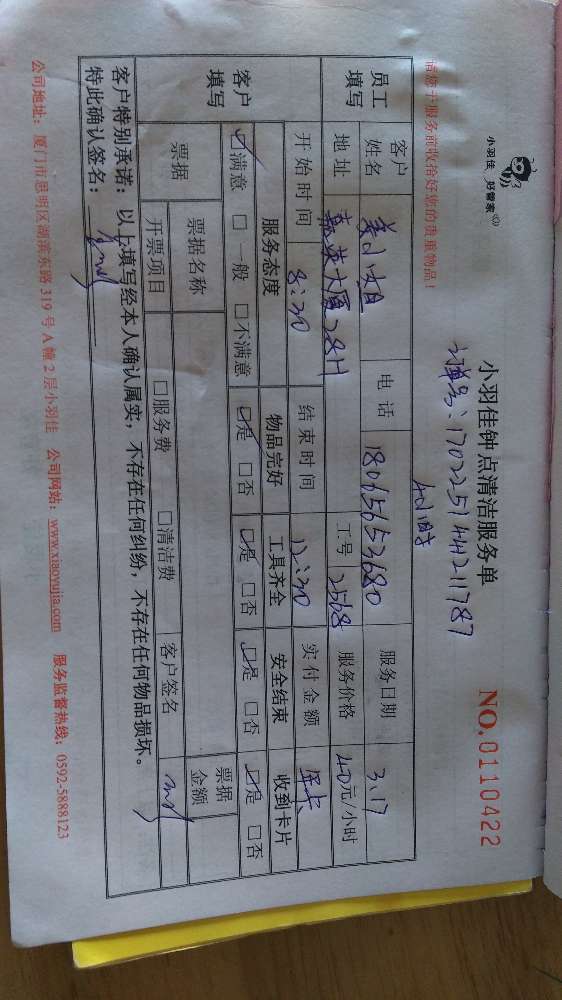 小羽佳 好管家
小羽佳钟点清洁服务单
NO.0110422
订单号:170225144211787
请您于服务前收拾好您的贵重物品!
4小时
员工填写 客户姓名 姜小姐 电话 18065652680 服务日期 3.17
地址 嘉英大厦28H 工号 2568 服务价格 40元/小时
开始时间 8:30 结束时间 12:30 实付金额
客户填写 服务态度 物品完好 工具齐全 安全结束 收到卡片
☑满意 □一般 □不满意 ☑是 □否 ☑是 □否 ☑是 □否 ☑是 □否
票据 票据名称 票据金额
开票项目 □服务费 □清洁费 客户签名
客户特别承诺:以上填写经本人确认属实,不存在任何纠纷,不存在任何物品损坏。
特此确认签名:
公司地址:厦门市思明区湖滨东路319号A幢2层小羽佳 公司网站:www.xiaoyujia.com 服务监督热线:0592-5888123